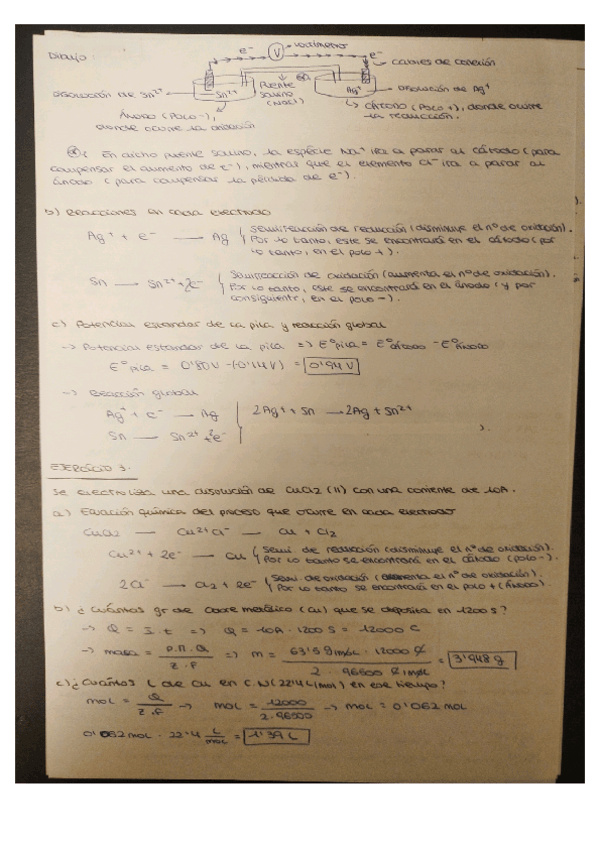 Dibujo:
e⁻
V
voltímetro
e⁻
cables de conexión
disolución de Sn²⁺
Sn²⁺
Puente
salino
(NaCl)
Ag⁺
disolución de Ag⁺
Ánodo (Polo -),
donde ocurre la oxidación
cátodo (Polo +), donde ocurre
la reducción.
En dicho puente salino, la especie Na⁺ irá a parar al cátodo (para
compensar el aumento de e⁻), mientras que el elemento Cl⁻ irá a parar al
ánodo (para compensar la pérdida de e⁻).
b) Reacciones en cada electrodo
Ag⁺ + e⁻ → Ag
Semirreacción de reducción (disminuye el nº de oxidación).
Por lo tanto, este se encontrará en el cátodo (por
lo tanto, en el polo +).
Sn → Sn²⁺ + 2e⁻
Semirreacción de oxidación (aumenta el nº de oxidación).
Por lo tanto, este se encontrará en el ánodo (y por
consiguiente, en el polo -).
c) Potencial estándar de la pila y reacción global
→ Potencial estándar de la pila => E°pila = E°cátodo - E°ánodo
E°pila = 0'80V - (-0'14V) = 0'94 V
→ Reacción global
Ag⁺ + e⁻ → Ag
Sn → Sn²⁺ + 2e⁻
2Ag⁺ + Sn → 2Ag + Sn²⁺
EJERCICIO 3.
Se electroliza una disolución de CuCl2 (II) con una corriente de 10A.
a) Ecuación química del proceso que ocurre en cada electrodo
CuCl2 → Cu²⁺Cl⁻ → Cu + Cl2
Cu²⁺ + 2e⁻ → Cu
Semi. de reducción (disminuye el nº de oxidación).
Por lo tanto se encontrará en el cátodo (polo -).
2Cl⁻ → Cl2 + 2e⁻
Semi. de oxidación (aumenta el nº de oxidación).
Por lo tanto se encontrará en el polo + (Ánodo)
b) ¿Cuántos gr de cobre metálico (Cu) que se deposita en 1200 s?
→ Q = I · t => Q = 10A · 1200 s = 12000 C
→ masa = P.M. Q / Z · F => m = 63'5 g/mol · 12000 C / 2 · 96500 C/mol = 3'948 g
c) ¿Cuántos L de Cl2 en C.N (22'4 L/mol) en ese tiempo?
mol = Q / Z · F → mol = 12000 / 2 · 96500 → mol = 0'062 mol
0'062 mol · 22'4 L/mol = 1'39 L